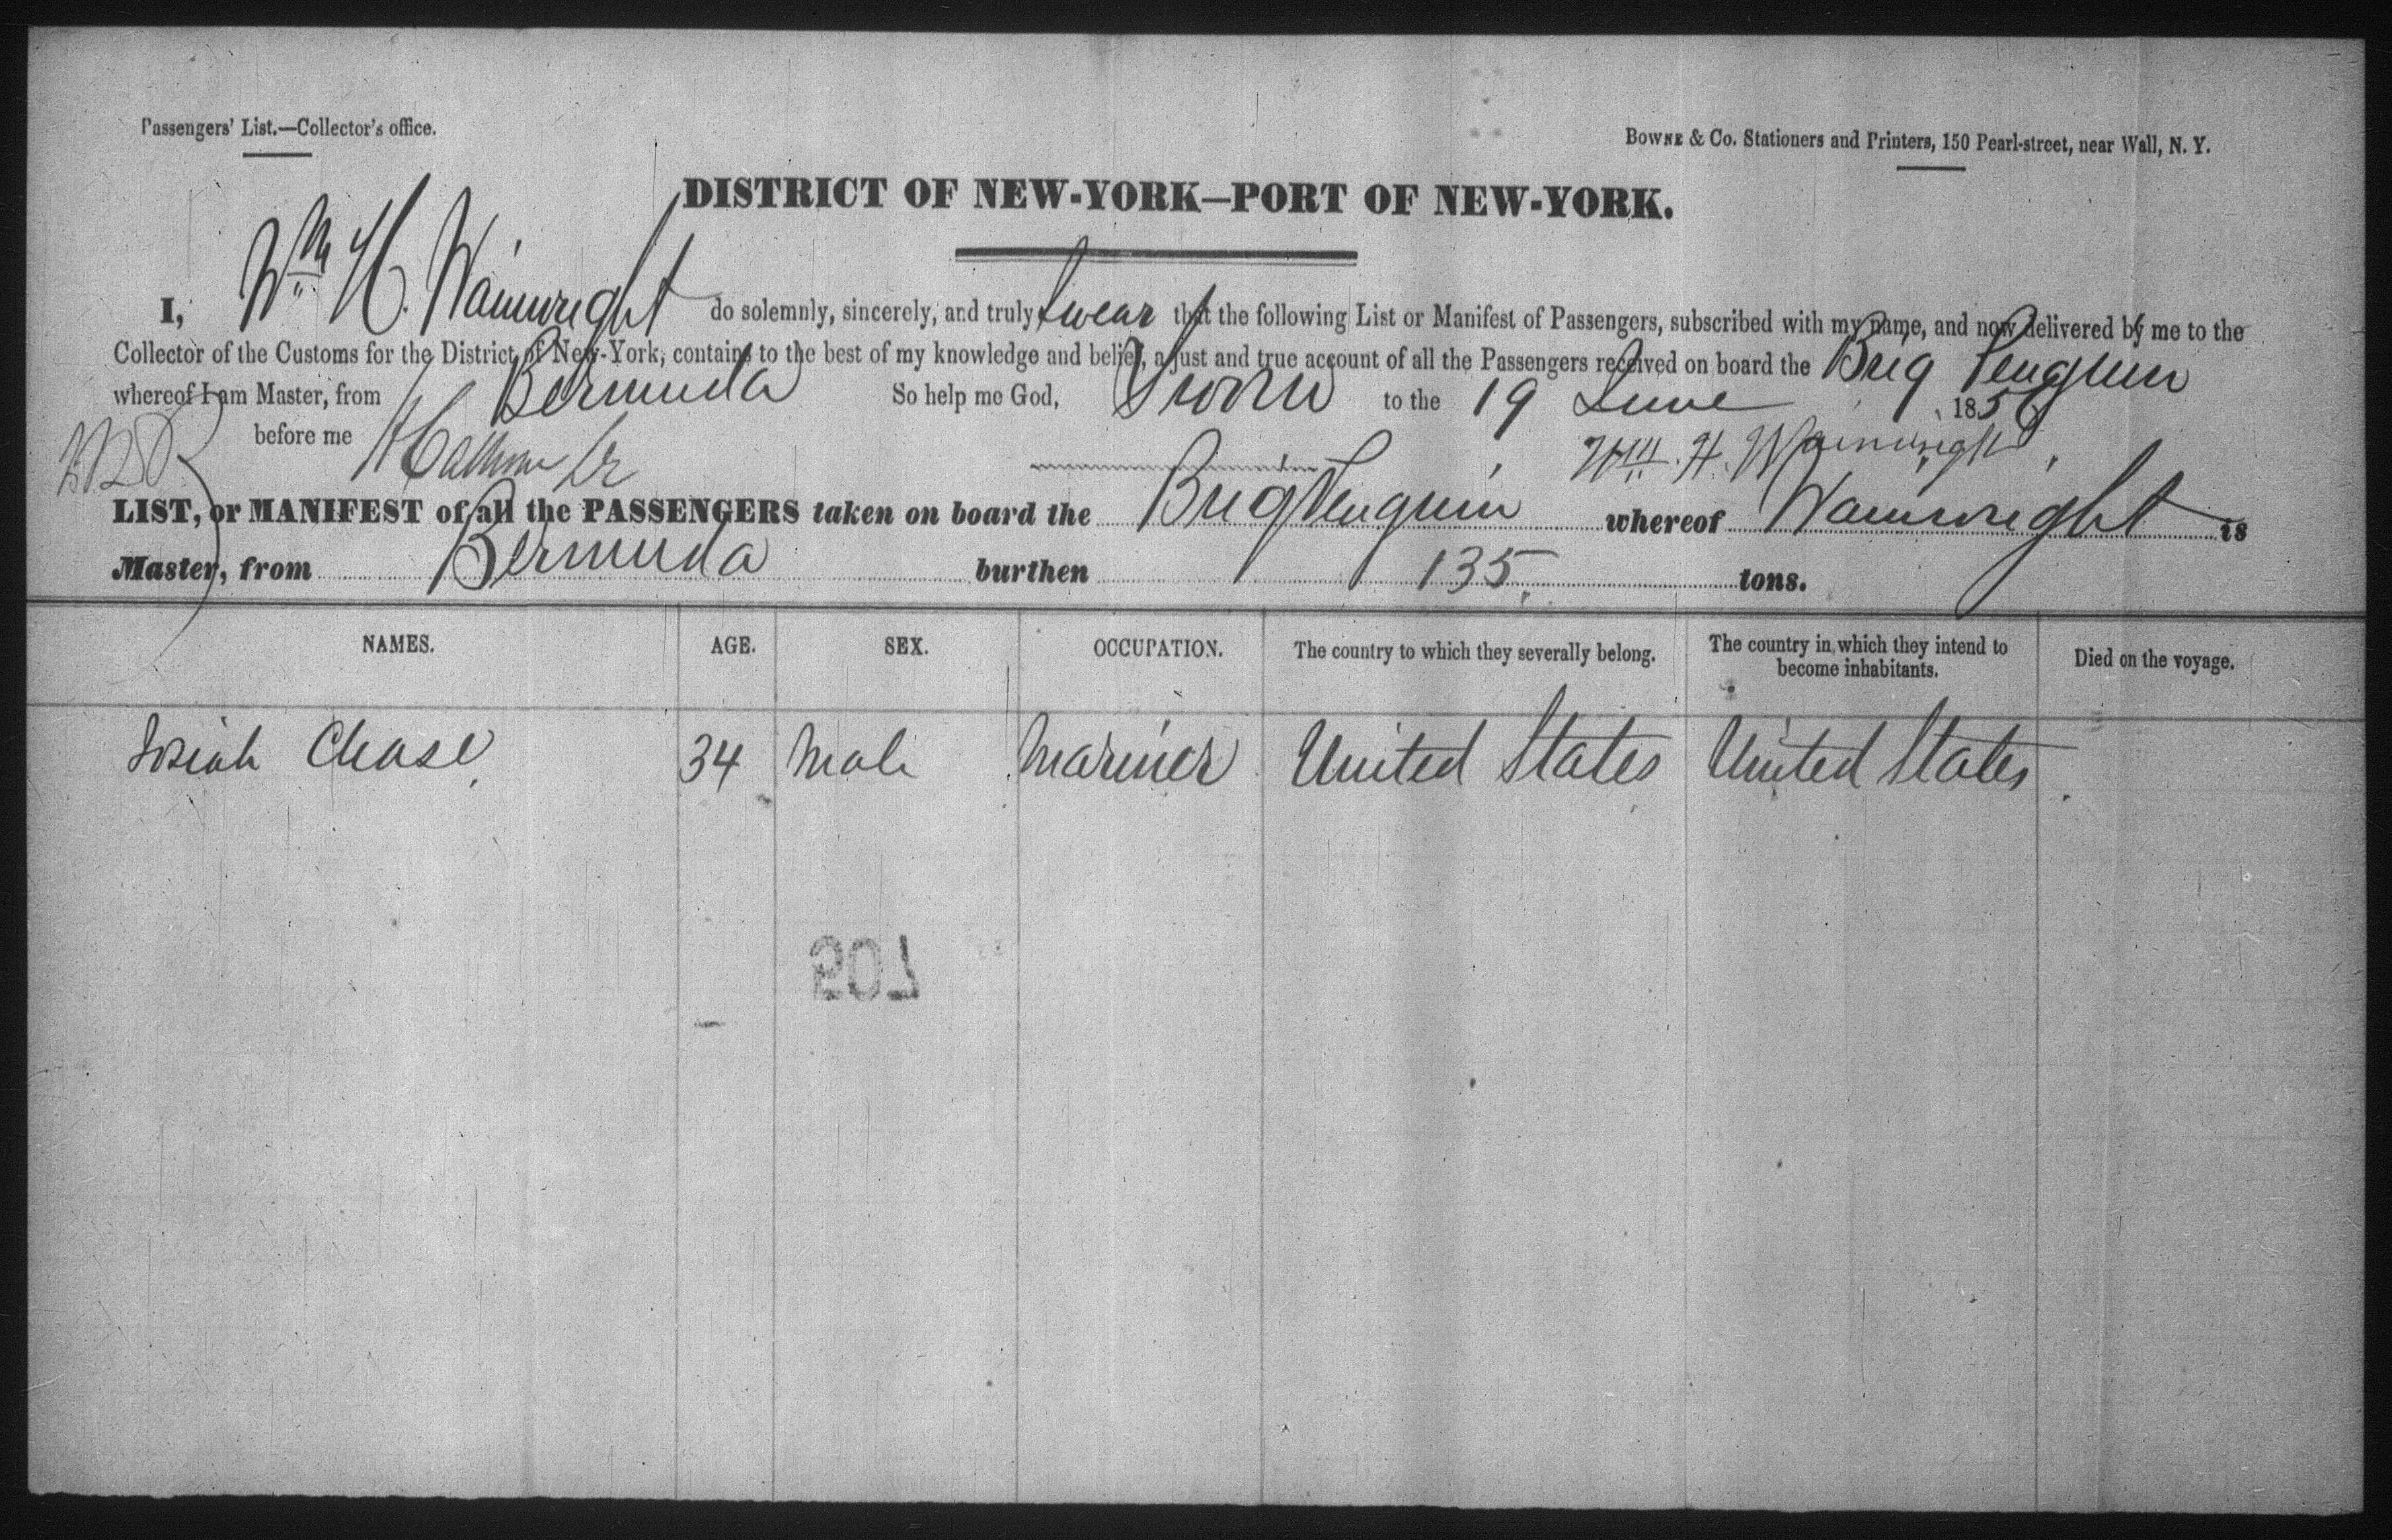 Passengers' List.—Collector's office.
BOWNE & Co. Stationers and Printers, 150 Pearl-street, near Wall, N. Y.
DISTRICT OF NEW-YORK—PORT OF NEW-YORK.
I, Wm H. Wainwright do solemnly, sincerely, and truly swear that the following List or Manifest of Passengers, subscribed with my name, and now delivered by me to the
Collector of the Customs for the District of New-York, contains to the best of my knowledge and belief, a just and true account of all the Passengers received on board the Brig Penguin
whereof I am Master, from Bermuda So help me God, Sworn to the 19 June 185
before me Wm. H. Wainwright
LIST, or MANIFEST of all the PASSENGERS taken on board the Brig Penguin whereof Wainwright is
Master, from Bermuda burthen 135 tons.
NAMES. AGE. SEX. OCCUPATION. The country to which they severally belong. The country in which they intend to become inhabitants. Died on the voyage.
Josiah Chase 34 Male Mariner United States United States